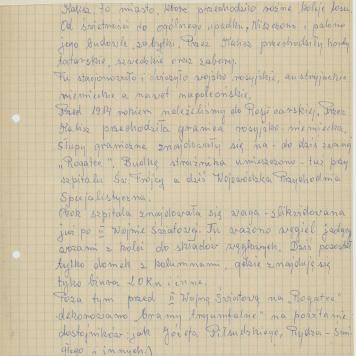 Kalisz to miasto, które przechodziło różne koleje losu.
Od świetności do ogólnego upadku. Niszczono i palono
jego budowle zabytki. Przez Kalisz przechodziły hordy
tatarskie, szwedzkie oraz zabory.
Tu stacjonowało i ćwiczyło wojsko rosyjskie, austryjackie
niemieckie a nawet napoleońskie.
Przed 1914 rokiem należeliśmy do Rosji carskiej. Przez
Kalisz przechodziła granica rosyjsko-niemiecka.
Słupy graniczne znajdowały się na - do dziś zwanej
„Rogatce". Budkę strażnika umieszczono - tuż przy
szpitalu Św. Trójcy a dziś Wojewódzka Przychodnia
Specjalistyczna.
Obok szpitala znajdowała się waga - zlikwidowana
już po II Wojnie Światowej. Tu ważono węgiel jadący
wozami z kolei do składów węglowych. Dziś pozostał
tylko domek z kolumnami, gdzie znajdują się
tylko biura LOKu i inne.
Poza tym przed II Wojną Światową na „Rogatce"
dekorowano „bramy tryumfalne" na powitanie
dostojników jak Józefa Piłsudskiego, Rydza - Śmi-
głego i innych.)